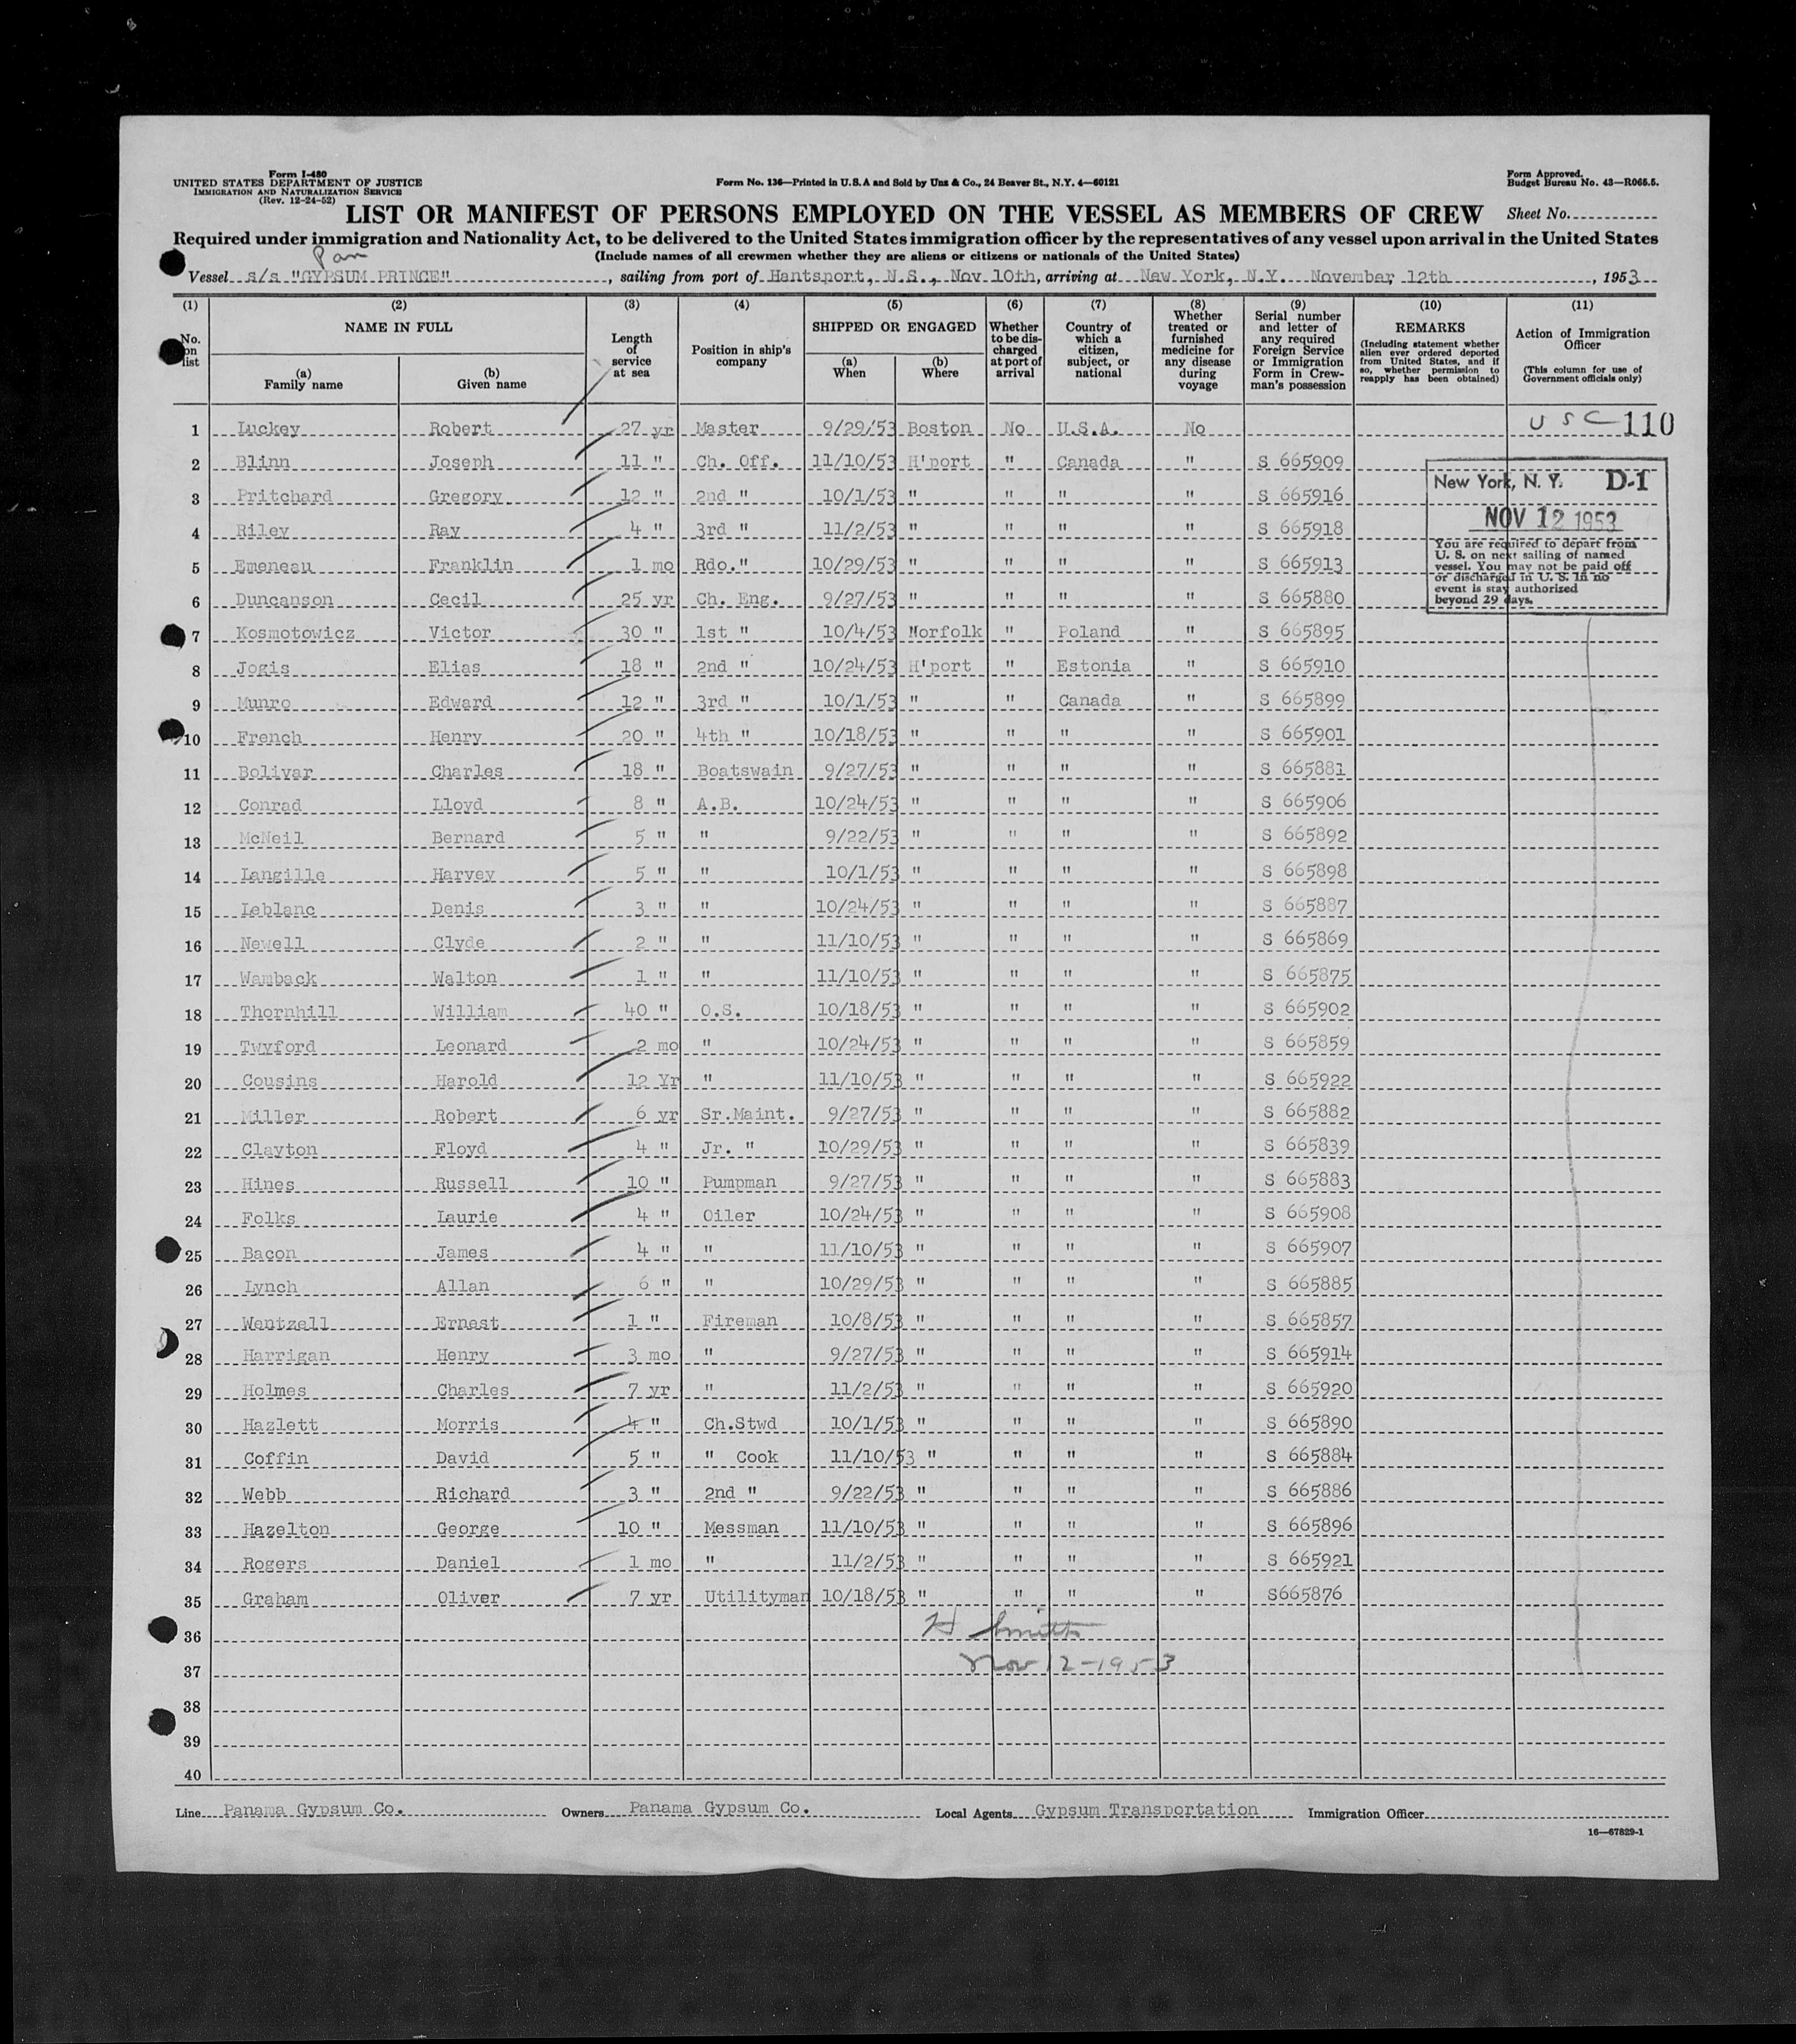 Form I-480
UNITED STATES DEPARTMENT OF JUSTICE
IMMIGRATION AND NATURALIZATION SERVICE
(Rev. 12-24-52)
Form No. 136—Printed in U.S.A and Sold by Unz & Co., 24 Beaver St., N.Y. 4—60121
Form Approved.
Budget Bureau No. 43—R065.5.
LIST OR MANIFEST OF PERSONS EMPLOYED ON THE VESSEL AS MEMBERS OF CREW Sheet No.
Required under immigration and Nationality Act, to be delivered to the United States immigration officer by the representatives of any vessel upon arrival in the United States
(Include names of all crewmen whether they are aliens or citizens or nationals of the United States)
Pan
Vessel s/s "GYPSUM PRINCE", sailing from port of Hantsport, N.S., Nov 10th, arriving at New York, N.Y. November 12th, 1953
(1) (2) (3) (4) (5) (6) (7) (8) (9) (10) (11)
No. on list
NAME IN FULL
(a) Family name
(b) Given name
Length of service at sea
Position in ship's company
SHIPPED OR ENGAGED
(a) When
(b) Where
Whether to be discharged at port of arrival
Country of which a citizen, subject, or national
Whether treated or furnished medicine for any disease during voyage
Serial number and letter of any required Foreign Service or Immigration Form in Crewman's possession
REMARKS
(Including statement whether alien ever ordered deported from United States, and if so, whether permission to reapply has been obtained)
Action of Immigration Officer
(This column for use of Government officials only)
1 Luckey Robert 27 yr Master 9/29/53 Boston No U.S.A. No USC 110
2 Blinn Joseph 11 " Ch. Off. 11/10/53 H'port " Canada " S 665909
3 Pritchard Gregory 12 " 2nd " 10/1/53 " " " " S 665916
4 Riley Ray 4 " 3rd " 11/2/53 " " " " S 665918
5 Emeneau Franklin 1 mo Rdo." 10/29/53 " " " " S 665913
6 Duncanson Cecil 25 yr Ch. Eng. 9/27/53 " " " " S 665880
New York, N. Y. D-1
NOV 12 1953
You are required to depart from
U. S. on next sailing of named
vessel. You may not be paid off
or discharged in U. S. In no
event is stay authorized
beyond 29 days.
7 Kosmotowicz Victor 30 " 1st " 10/4/53 Norfolk " Poland " S 665895
8 Jogis Elias 18 " 2nd " 10/24/53 H'port " Estonia " S 665910
9 Munro Edward 12 " 3rd " 10/1/53 " " Canada " S 665899
10 French Henry 20 " 4th " 10/18/53 " " " " S 665901
11 Bolivar Charles 18 " Boatswain 9/27/53 " " " " S 665881
12 Conrad Lloyd 8 " A.B. 10/24/53 " " " " S 665906
13 McNeil Bernard 5 " " 9/22/53 " " " " S 665892
14 Langille Harvey 5 " " 10/1/53 " " " " S 665898
15 Leblanc Denis 3 " " 10/24/53 " " " " S 665887
16 Newell Clyde 2 " " 11/10/53 " " " " S 665869
17 Wamback Walton 1 " " 11/10/53 " " " " S 665875
18 Thornhill William 40 " O.S. 10/18/53 " " " " S 665902
19 Twyford Leonard 2 mo " 10/24/53 " " " " S 665859
20 Cousins Harold 12 Yr " 11/10/53 " " " " S 665922
21 Miller Robert 6 yr Sr.Maint. 9/27/53 " " " " S 665882
22 Clayton Floyd 4 " Jr. " 10/29/53 " " " " S 665839
23 Hines Russell 10 " Pumpman 9/27/53 " " " " S 665883
24 Folks Laurie 4 " Oiler 10/24/53 " " " " S 665908
25 Bacon James 4 " " 11/10/53 " " " " S 665907
26 Lynch Allan 6 " " 10/29/53 " " " " S 665885
27 Wentzell Ernest 1 " Fireman 10/8/53 " " " " S 665857
28 Harrigan Henry 3 mo " 9/27/53 " " " " S 665914
29 Holmes Charles 7 yr " 11/2/53 " " " " S 665920
30 Hazlett Morris 4 " Ch.Stwd 10/1/53 " " " " S 665890
31 Coffin David 5 " " Cook 11/10/53 " " " " S 665884
32 Webb Richard 3 " 2nd " 9/22/53 " " " " S 665886
33 Hazelton George 10 " Messman 11/10/53 " " " " S 665896
34 Rogers Daniel 1 mo " 11/2/53 " " " " S 665921
35 Graham Oliver 7 yr Utilityman 10/18/53 " " " " S665876
36 H Smith
37 Nov 12-1953
38
39
40
Line Panama Gypsum Co. Owners Panama Gypsum Co. Local Agents Gypsum Transportation Immigration Officer
16—67829-1